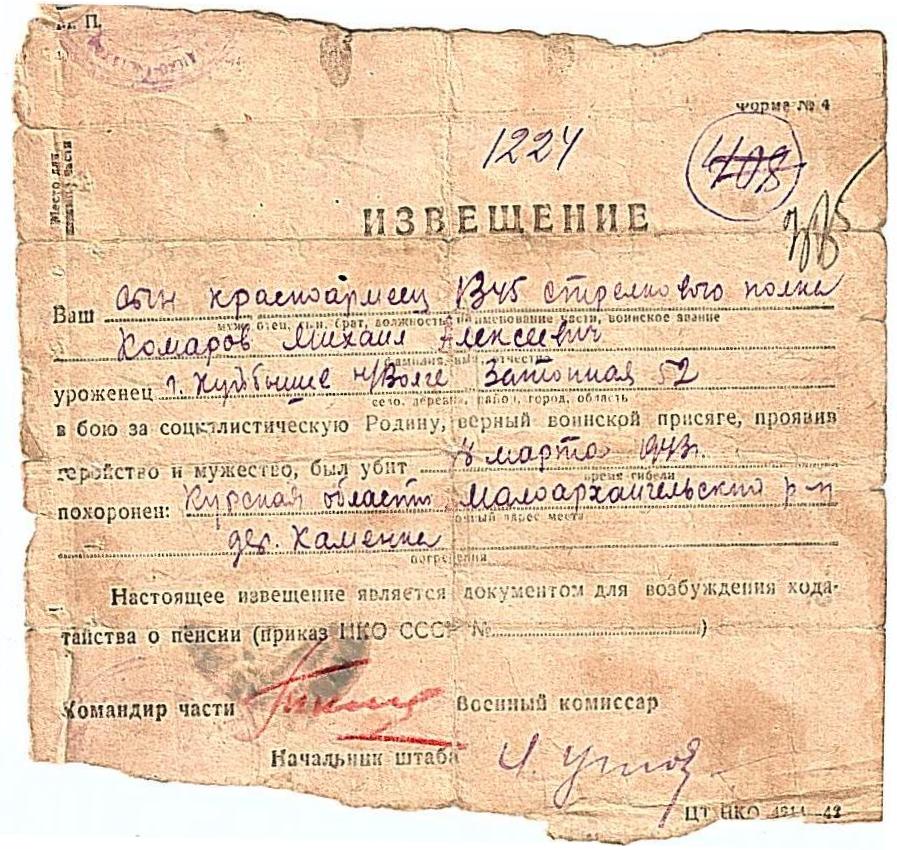 М. П.
Форма № 4
1224
408
Место для
части
ИЗВЕЩЕНИЕ
Ваш сын красноармеец 1345 стрелкового полка
муж, отец, сын, брат, должность, наименование части, воинское звание
Комаров Михаил Алексеевич
фамилия, имя, отчество
уроженец г. Куйбышев н/Волге Затонная 52
село, деревня, район, город, область
в бою за социалистическую Родину, верный воинской присяге, проявив
геройство и мужество, был убит 8 марта 1943г.
время гибели
похоронен: Курская область Малоархангельский р-н
полный адрес места
дер. Каменка
погребения
Настоящее извещение является документом для возбуждения хода-
тайства о пенсии (приказ НКО СССР № )
Командир части Военный комиссар
Начальник штаба
ЦТ НКО 43